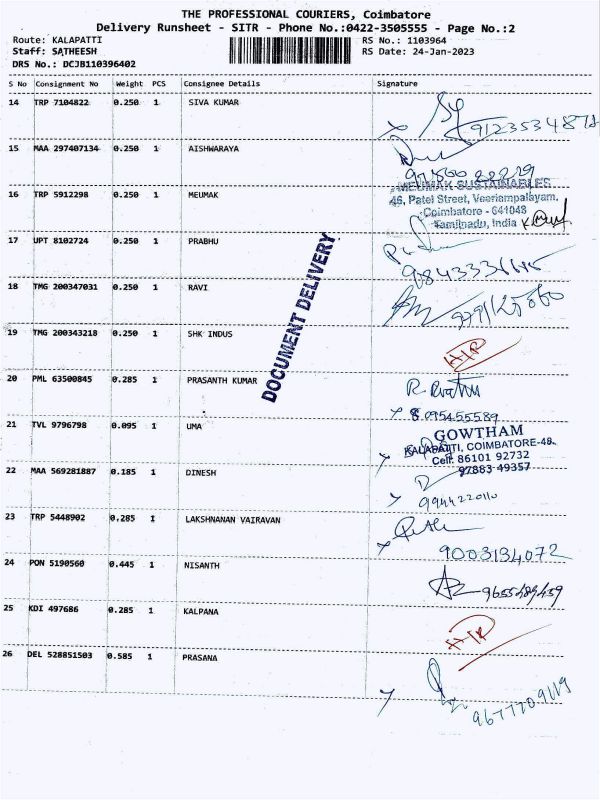 THE PROFESSIONAL COURIERS, Coimbatore
Delivery Runsheet - SITR - Phone No.:0422-3505555 - Page No.:2
Route: KALAPATTI
RS No.: 1103964
Staff: SATHEESH
RS Date: 24-Jan-2023
DRS No.: DCJB110396402
S No Consignment No Weight PCS Consignee Details Signature
14 TRP 7104822 0.250 1 SIVA KUMAR
15 MAA 297407134 0.250 1 AISHWARAYA
16 TRP 5912298 0.250 1 MEUMAK
MEUMAK SUSTAINABLES
46, Patel Street, Veeriampalayam.
Coimbatore - 641048
Tamilnadu, India
17 UPT 8102724 0.250 1 PRABHU
DOCUMENT DELIVERY
18 TMG 200347031 0.250 1 RAVI
19 TMG 200343218 0.250 1 SHK INDUS
20 PML 63500845 0.285 1 PRASANTH KUMAR
8095455589
21 TVL 9796798 0.095 1 UMA
GOWTHAM
KALAPATTI, COIMBATORE-48.
Cell: 86101 92732
97883 49357
22 MAA 569281887 0.185 1 DINESH
9944220110
23 TRP 5448902 0.285 1 LAKSHNANAN VAIRAVAN
9003134072
24 PON 5190560 0.445 1 NISANTH
25 KDI 497686 0.285 1 KALPANA
26 DEL 528851503 0.585 1 PRASANA
9677709119